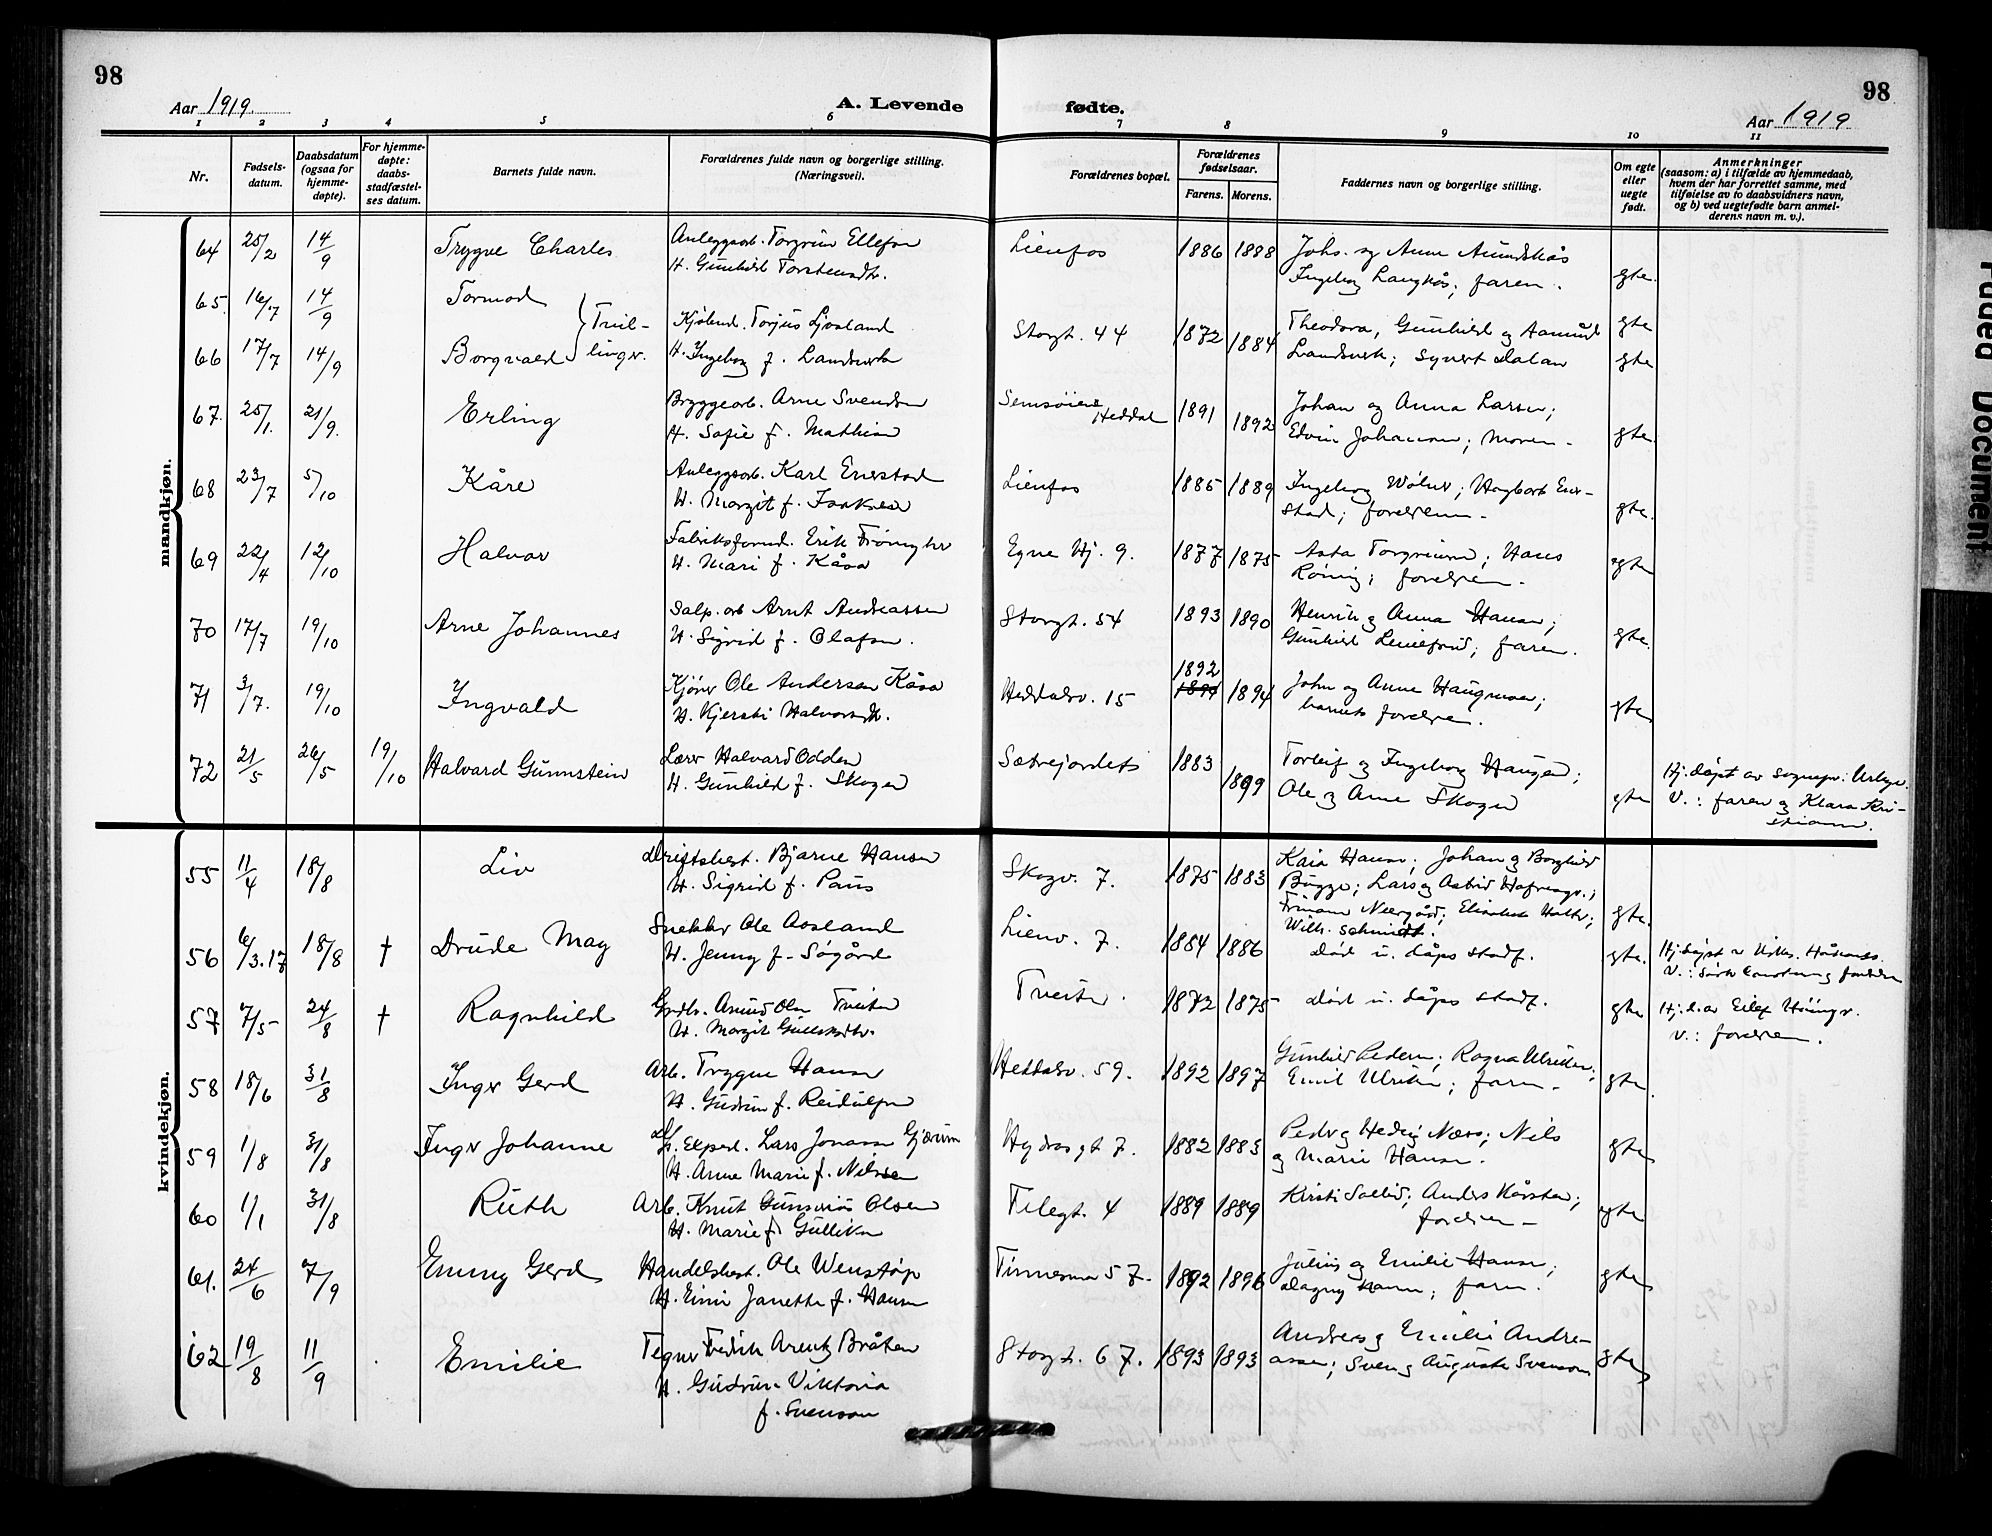 98
98
Aar 1919
A. Levende fødte.
Aar 1919
1 2 3 4 5 6 7 8 9 10 11
Nr.
Fødsels-
datum.
Daabsdatum
(ogsaa for
hjemme-
døpte).
For hjemme-
døpte:
daabs-
stadfæstel-
ses datum.
Barnets fulde navn.
Forældrenes fulde navn og borgerlige stilling.
(Næringsvei).
Forældrenes bopæl.
Forældrenes
fødselsaar.
Farens. Morens.
Faddernes navn og borgerlige stilling.
Om egte
eller
uegte
født.
Anmerkninger
(saasom: a) i tilfælde av hjemmedaab,
hvem der har forrettet samme, med
tilføielse av to daabsvidners navn,
og b) ved uegtefødte barn anmel-
derens navn m. v.).
mandkjøn.
64 25/2 14/9 Trygve Charles Anleggsarb. Torgrim Ellefsen Lienfos 1886 1888 Johs. og Anne
H. Gunhild Torstensdtr. Ingeborg Langkås; faren. gte.
65. 16/7 14/9 Tormod Tvil- Kjøbmd. Torjus Ljosland Storgt. 44 1872 1884 Theodora, Gunhild og Aamund gte
66 17/7 14/9 Borgvald linger. H. Ingeborg f. Landsverk Landsverk; Syvert Dalan gte
67. 25/1. 21/9. Erling Bryggearb. Arne Svendsen Semsøiene Heddal 1891 1892 Johan og Anna Larsen;
H. Sofie f. Mathisen Edvin Johansen; moren - gte.
68 23/7 5/10 Kåre Anleggsarb. Karl Enerstad Lienfos 1885 1889 Ingeborg Wølner; Hagbart Ener-
H. Margit f. Isaksen stad; foreldrene - gte.
69 22/4 12/10 Halvor Fabriksformd. Erik Egne Hj. 9. 1877 1875 Asta Torgrimsen; Hans
H. Mari f. Kåsa Rónning; foreldren - egte
70 17/7 19/10 Arne Johannes Salp. arb Arnt Andreassen Storgt. 54 1893 1890 Henrik og Anna Hansen;
H. Sigrid f. Olafsen. Gunhild faren. gte.
71 3/7. 19/10 Ingvald Kjører Ole Andersen Kåsa Heddalsv. 15 1892 1894 John og Anne Haugmoen;
H. Kjersti Halvorsdtr. barnets foreldre. gte
72 21/5 26/5 19/10 Halvard Gunnstein Lærer Halvard Odden Sætrejordets 1883 1899 Torleif og Ingeborg Haugen; Hj. døpt av sognepr.
H. Gunhild f. Skogen Ole og Anne Skogen gte V.: faren og Klara Kri-
stiansen.
kvindekjøn.
55 11/4 18/8 Liv Driftsbest. Bjarne Hansen Skogv. 7. 1875 1883 Kaia Hansen; Johan og Borghild
H. Sigrid f. Paus Bugge; Lars og Astrid
Elisabeth Holter; gte.
Wilh. Schmidt.
56 6/3.17 18/8 † Drude May Snekker Ole Aasland Lienv. 7. 1884 1886 Død u. dåps stadf. gte.
H. Jenny f. Søgård V.:
57 7/5 24/8 † Ragnhild Grdbr. Amund Olsen Tveiten Tveiten. 1872 1875 Død u. dåps stadf. gte Hj. d. av Eilef
H. Margit Gulleksdtr. V.: foreldren.
58 18/6 31/8 Inger Gerd Arb. Trygve Hansen Heddalsv. 59. 1892 1897 Gunhild Pedersen; Ragna Ulriksen;
H. Gudrun f. Reidulfsen Emil Ulriksen; faren - gte
59 1/8 31/8 Inger Johanne Eksped. Lars Jonassen Gjærum Hydros gt 7. 1882 1883 Peder og Hedvig Næss; Nils
H. Anne Marie f. Nilssen og Marie Hansen. gte
60 1/1 31/8 Ruth Arb. Knut Olsen Filegt. 4 1889 1889 Kirsti Anders
H. Marie f. Gulliksen foreldren - egte
61. 24/6 7/9 Emmy Gerd Handelsbest. Ole Wenstøp Tinnesmo 57. 1892 1896 Julius og Emilie Hansen;
H. Janette f. Hansen Dagny Hansen; faren. gte
62 19/8 11/9 Emilie Tegner Fredrik Arentz Bråten Storgt. 67. 1893 1893 Andreas og Emilie Andre-
H. Gudrun Viktoria assen; Sven og Auguste Svenson gte
f. Svenson
Faded Document